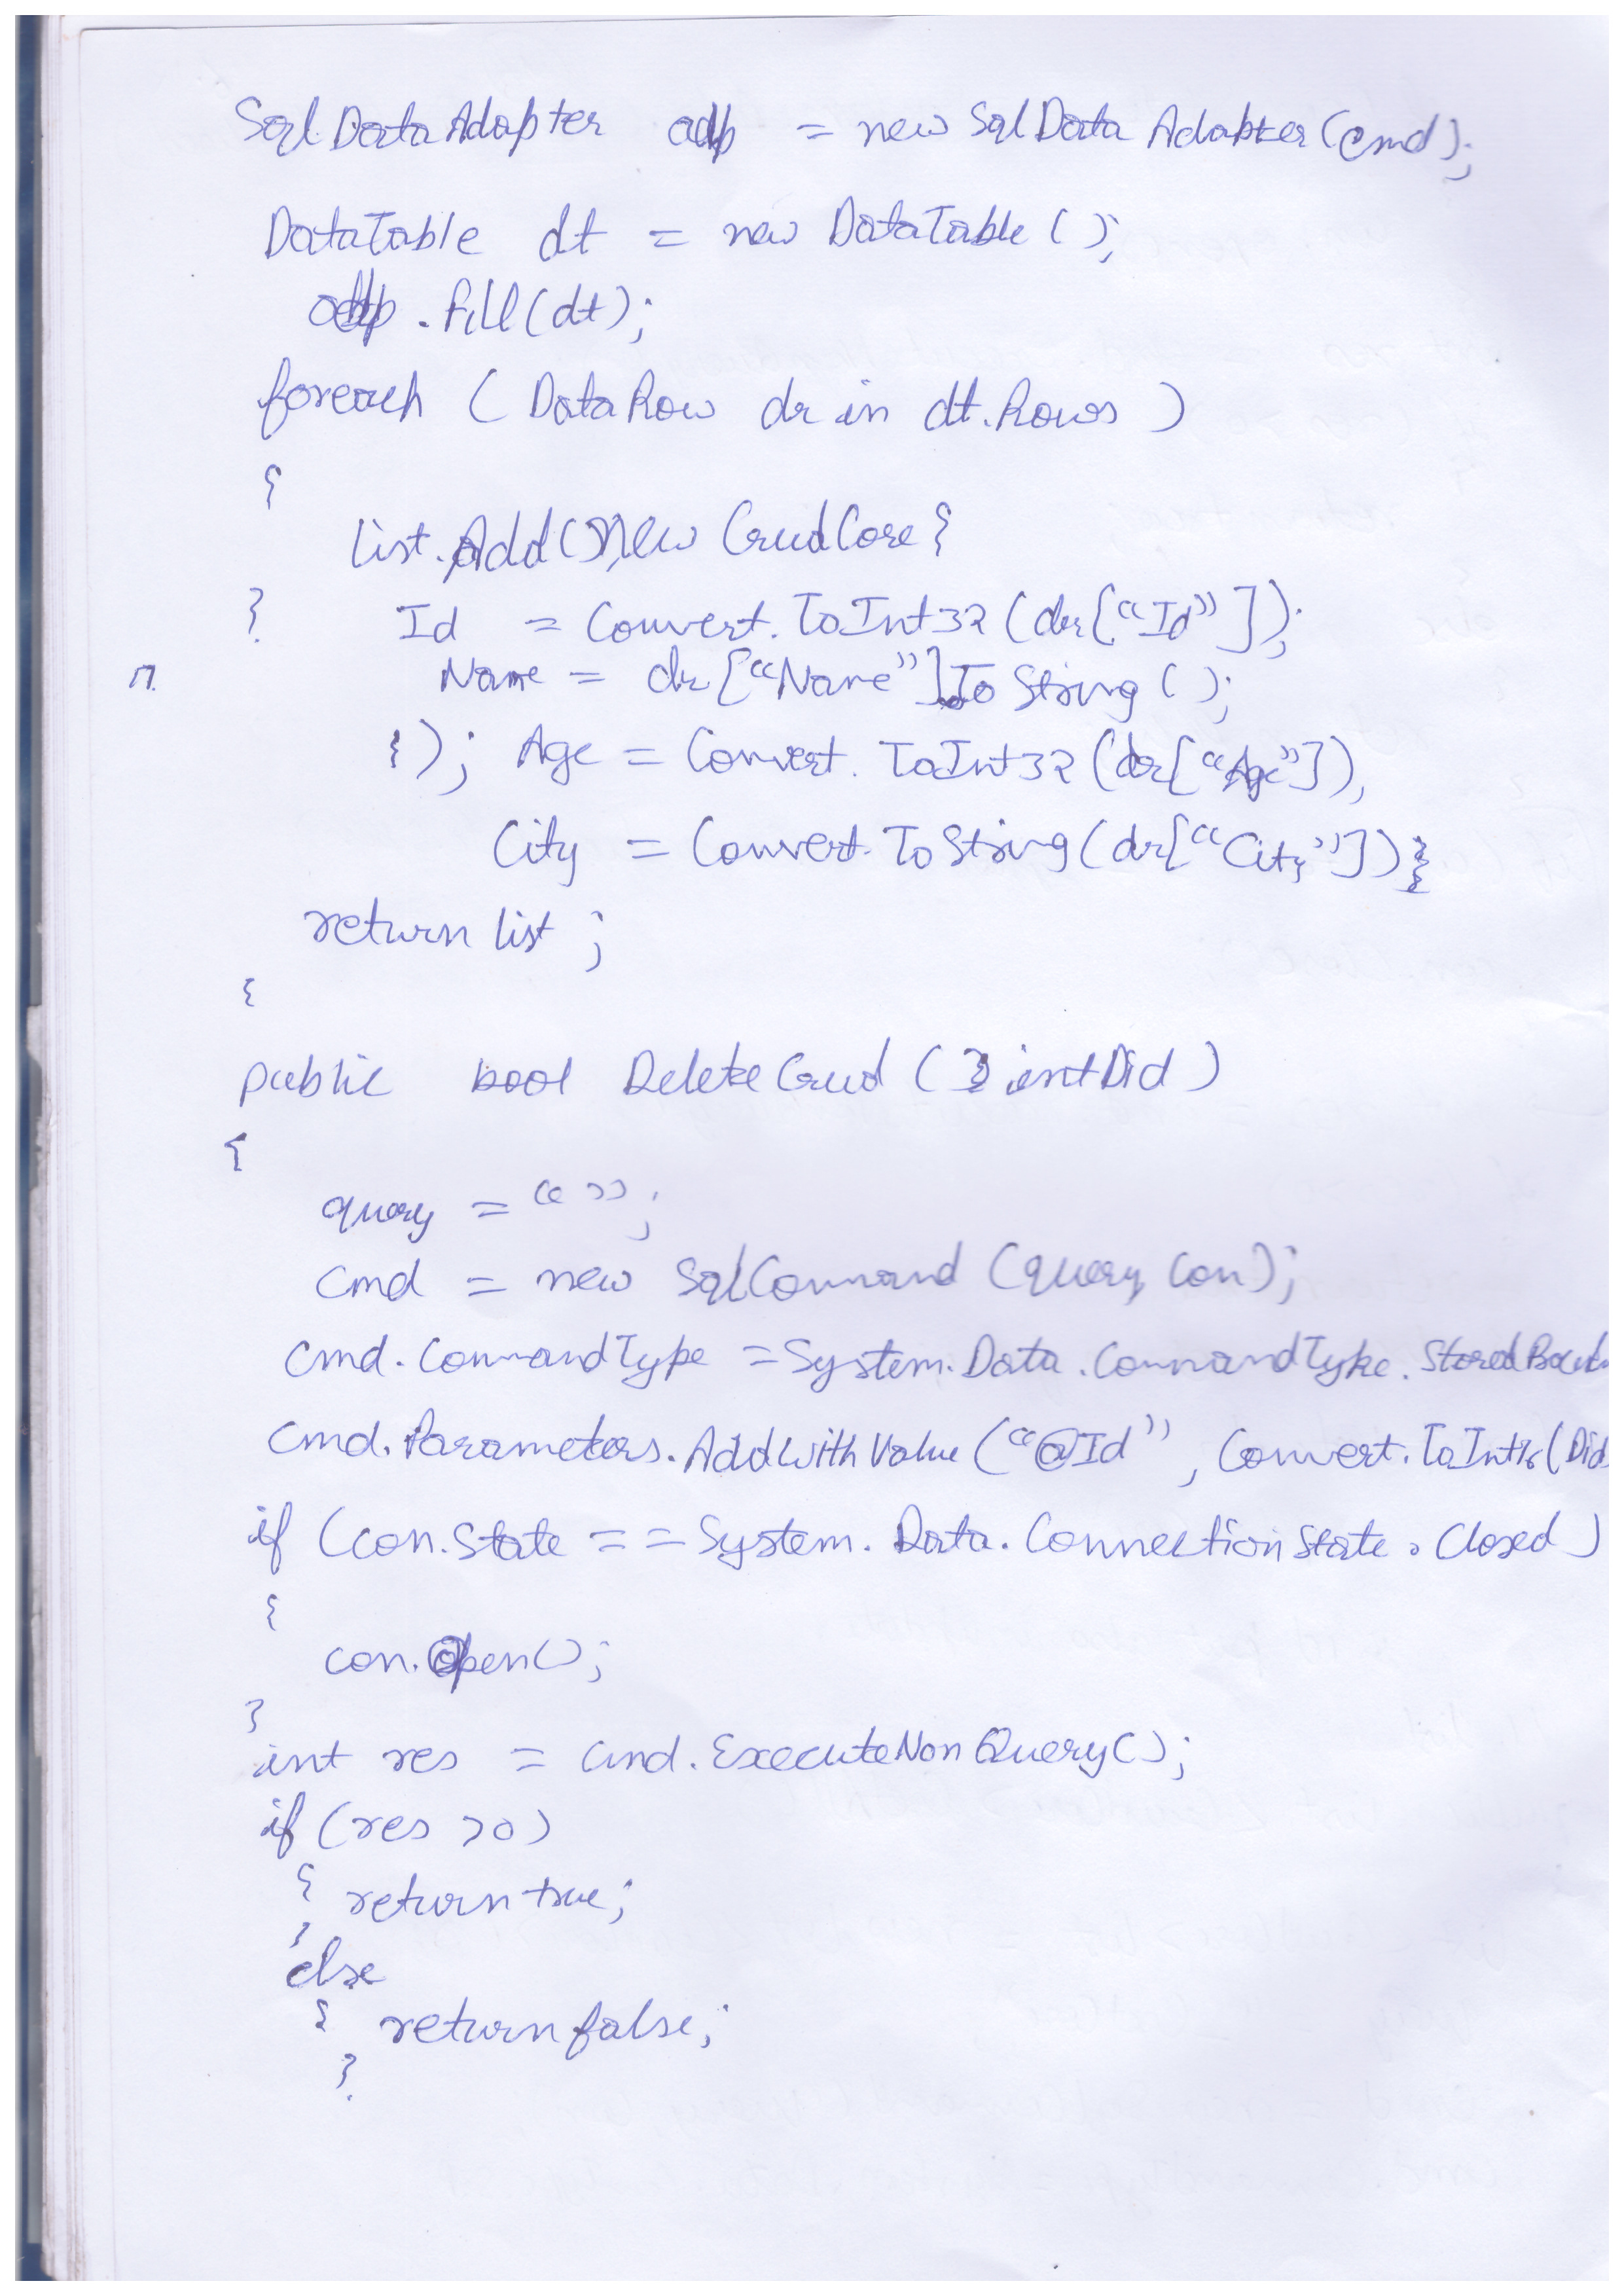 SqlDataAdapter adp = new SqlDataAdapter(cmd);
DataTable dt = new DataTable();
adp.fill(dt);
foreach (DataRow dr in dt.Rows)
{
list.Add( new CrudCore{
} Id = Convert.ToInt32(dr["Id"]);
Name = dr["Name"].ToString();
}); Age = Convert.ToInt32(dr["Age"]),
City = Convert.ToString(dr["City"])}
return list;
{
public bool DeleteCrud ( int Did)
{
query = "";
cmd = new SqlCommand (query, con);
cmd.CommandType = System.Data.CommandType.
cmd.Parameters.AddWithValue("@Id", Convert. (Did
if (con.State == System.Data.ConnectionState.Closed)
{
con.Open();
}
int res = cmd.ExecuteNonQuery();
if (res >0)
{ return true;
}
else
{ return false;
}